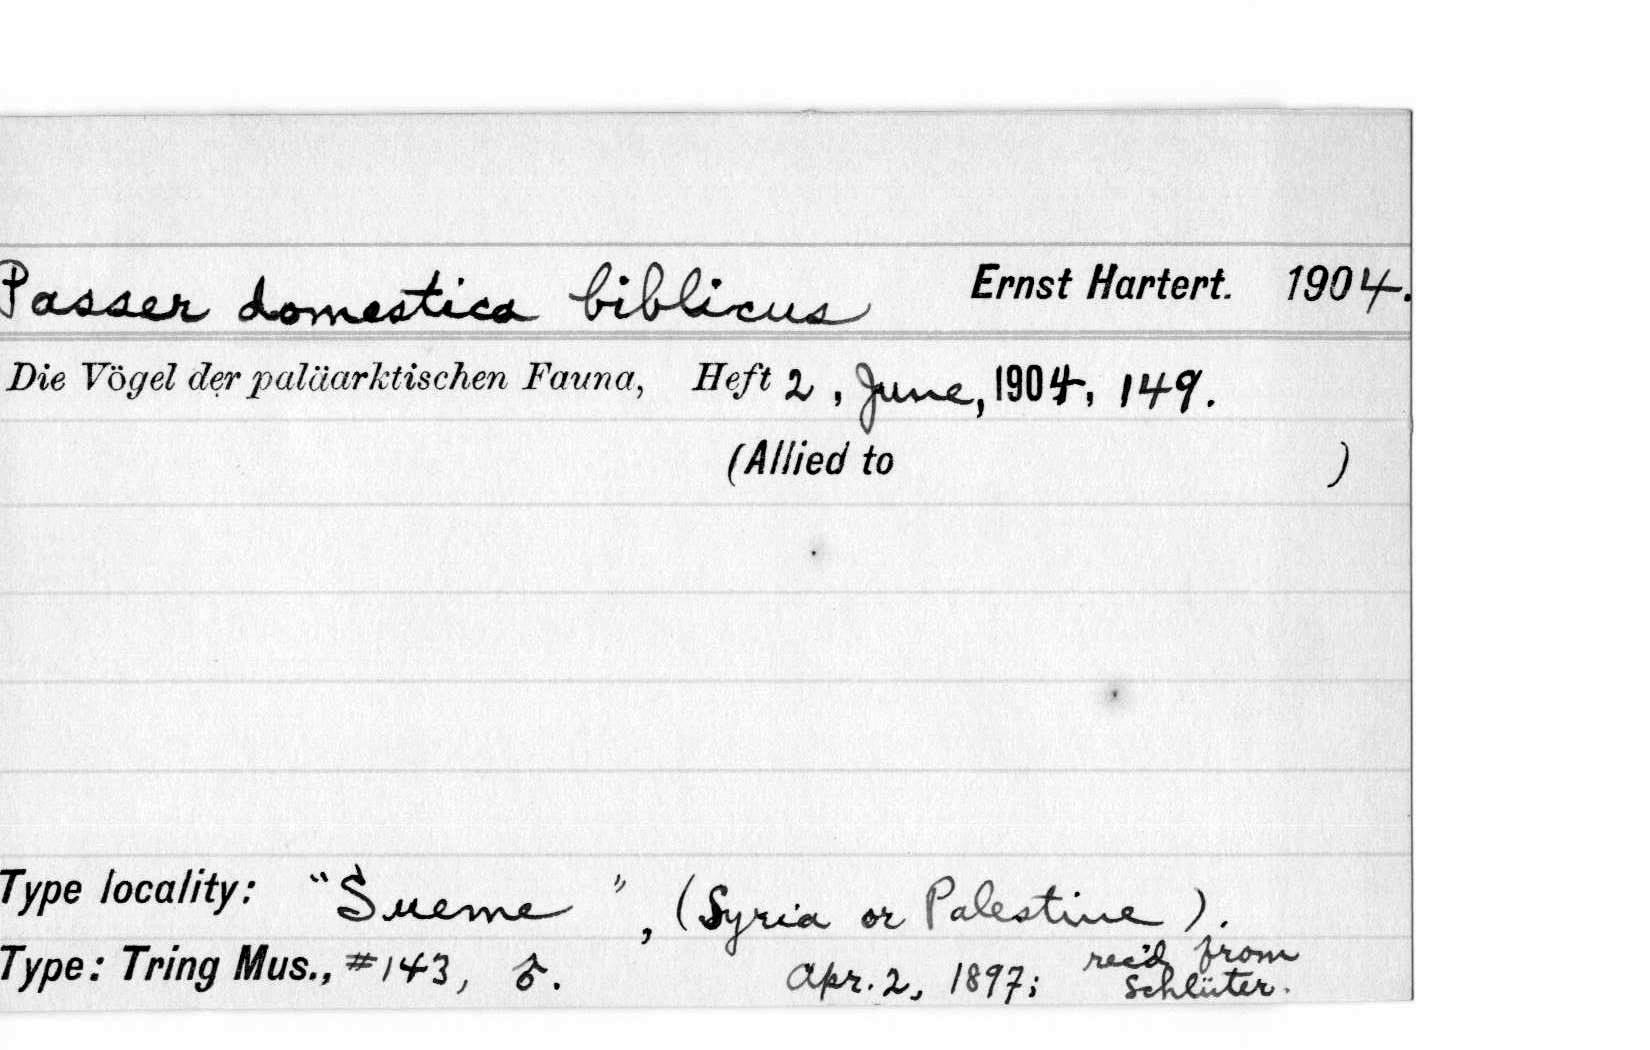 Passer domestica biblicus Ernst Hartert. 1904.
Die Vögel der paläarktischen Fauna, Heft 2, June, 1904, 149.
(Allied to )
Type locality: "Sueme", (Syria or Palestine).
Type: Tring Mus., #143, ♂. Apr. 2, 1897; rec'd from
Schlüter.